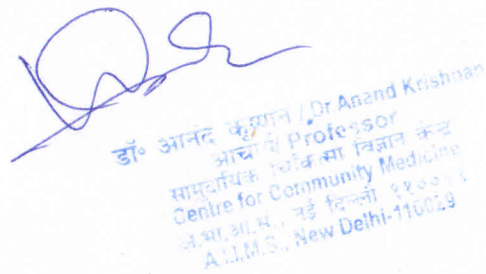 डॉ० आनंद कृष्णन / Dr. Anand Krishnan
आचार्य / Professor
सामुदायिक चिकित्सा विज्ञान केन्द्र
Centre for Community Medicine
अ.भा.आ.सं., नई दिल्ली
A.I.I.M.S., New Delhi-110029